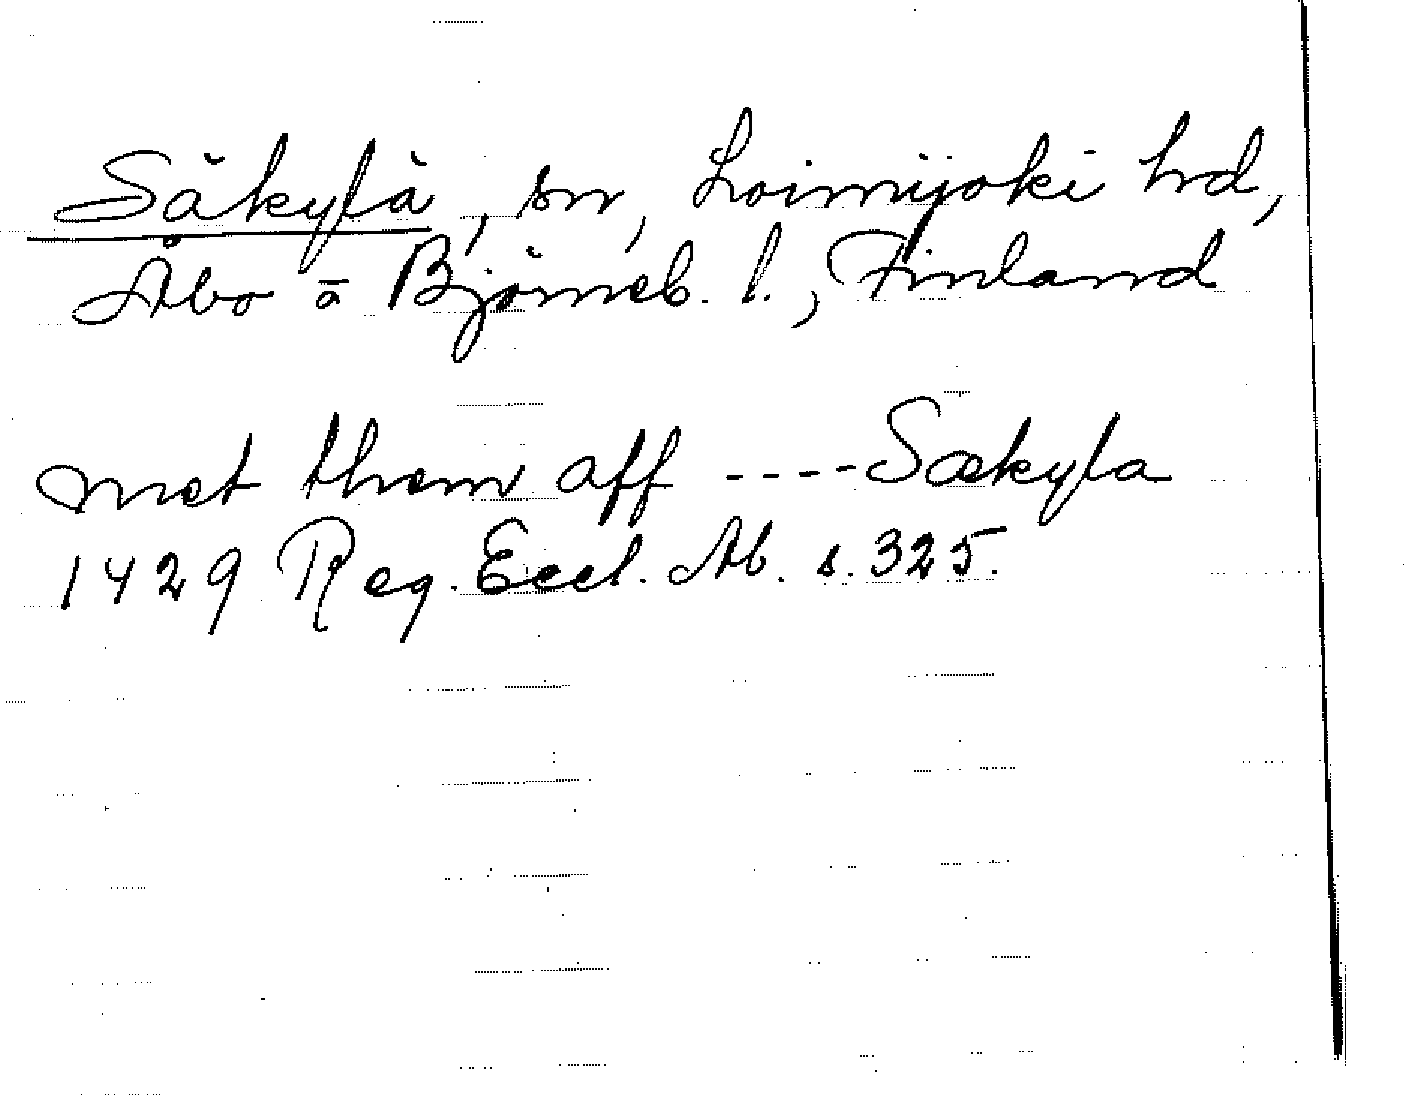 Säkylä, sn, Loimijoki hd,
Åbo ä Björneb. l., Finland
met them aff ----Sækyla
1429 Reg. Eccl. Ab. s. 325.